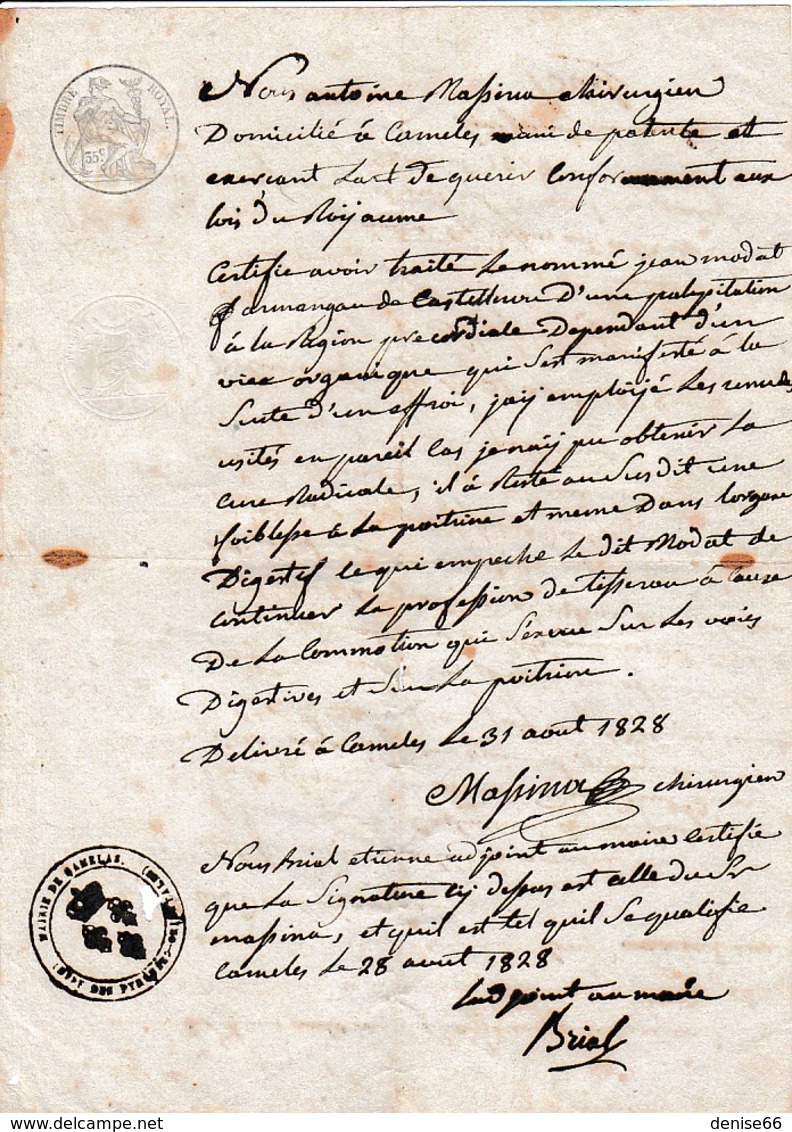 TIMBRE ROYAL.
35 c
Nous antoine Massina chirurgien
Domicilié à Cameles muni de patente et
exerçant Lart De guerir Conformement aux
lois du Roijaume
Certifie avoir traité Le nommé jean modat
farmangau de Castellnou D'une palepitation
à la Région precordiale Dependant d'un
vice organique qui S'est manifesté à la
Suite d'un effroi, jaij emploijé Les remedes
usités en pareil Cas je naij pu obtenir La
Cure Radicale, il à Resté au Susdit une
foiblesse à La poitrine et meme Dans Lorgane
Digestif ce qui empeche Le dit Modat de
Continuer La profession de tisseran à Cause
De La Commotion qui Séxerce Sur Les voies
Digestives et Sur La poitrine.
Delivré à Cameles Le 31 aout 1828
Massina chirurgien
MAIRIE DE CAMELAS.
DES PYRENEES-OR
Nous Brial etienne adjoint au maire Certifie
que La Signature Cij dessus est celle du Sr
massina, et quil est tel quil Se qualifie
Cameles Le 28 aout 1828
Ladjoint au maire
Brial
denise66